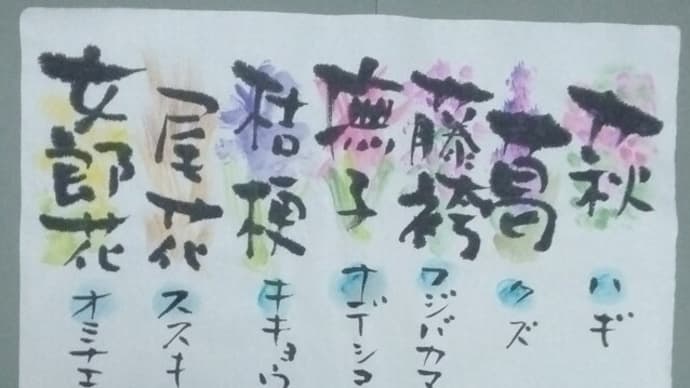 萩 ハギ
葛 クズ
藤袴 フジバカマ
撫子 ナデシコ
桔梗 キキョウ
尾花 ススキ
女郎花 オミナエ